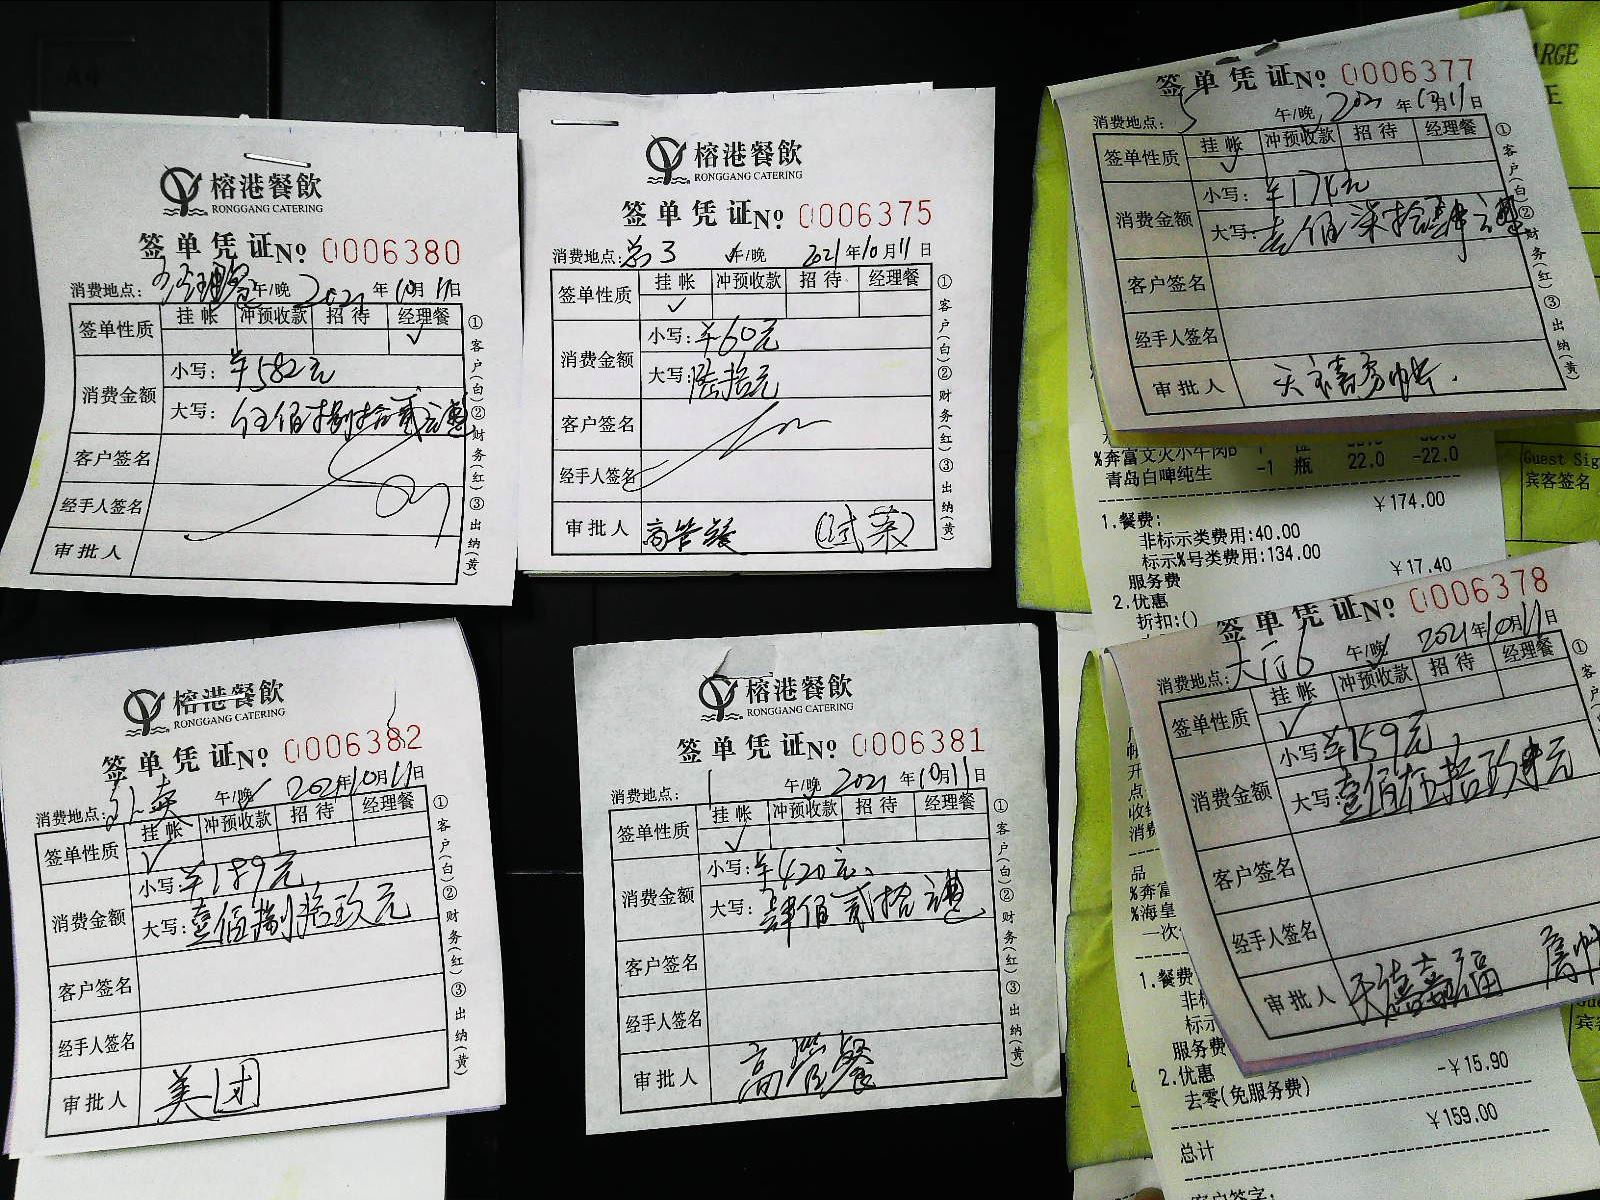 榕港餐飲
RONGGANG CATERING
签单凭证 No 0006380
消费地点: 经理餐 午/晚 2021 年 10 月 11 日
签单性质 挂帐 冲预收款 招待 经理餐
✓
消费金额
小写: ¥582元
大写: 伍佰捌拾贰元整
客户签名
经手人签名
审批人
①客户(白)②财务(红)③出纳(黄)
榕港餐飲
RONGGANG CATERING
签单凭证 No 0006375
消费地点: 3 午/晚 2021 年 10 月 11 日
签单性质 挂帐 冲预收款 招待 经理餐
✓
消费金额
小写: ¥60元
大写: 陆拾元
客户签名
经手人签名
审批人 高管餐 (试菜)
①客户(白)②财务(红)③出纳(黄)
ARGE
签单凭证 No 0006377
消费地点: 5 午/晚 2021 年 10 月 11 日
签单性质 挂帐 冲预收款 招待 经理餐
✓
消费金额
小写: ¥174元
大写: 壹佰柒拾肆元整
客户签名
经手人签名
审批人 天禧房帐.
①客户(白)②财务(红)③出纳(黄)
%奔富文火小牛肉
青岛白啤纯生 -1 瓶 22.0 -22.0
¥174.00
1.餐费:
非标示类费用:40.00
标示%号类费用:134.00
服务费 ¥17.40
2.优惠
折扣:()
Guest Sig
宾客签名
榕港餐飲
RONGGANG CATERING
签单凭证 No 0006382
消费地点: 外卖 午/晚 2021 年 10 月 11 日
签单性质 挂帐 冲预收款 招待 经理餐
✓
消费金额
小写: ¥189元
大写: 壹佰捌拾玖元
客户签名
经手人签名
审批人 美团
①客户(白)②财务(红)③出纳(黄)
榕港餐飲
RONGGANG CATERING
签单凭证 No 0006381
消费地点: 1 午/晚 2021 年 10 月 11 日
签单性质 挂帐 冲预收款 招待 经理餐
✓
消费金额
小写: ¥420元
大写: 肆佰贰拾元整
客户签名
经手人签名
审批人 高管餐
①客户(白)②财务(红)③出纳(黄)
签单凭证 No 0006378
消费地点: 大厅6 午/晚 2021 年 10 月 11 日
签单性质 挂帐 冲预收款 招待 经理餐
✓
消费金额
小写 ¥159元
大写: 壹佰伍拾玖元
客户签名
经手人签名
审批人 天禧嘉福 房帐
①客户
品
%奔富
%海皇
一次
1.餐费
非标
标示
服务费
2.优惠 -¥15.90
去零(免服务费)
¥159.00
总计
客户签字: